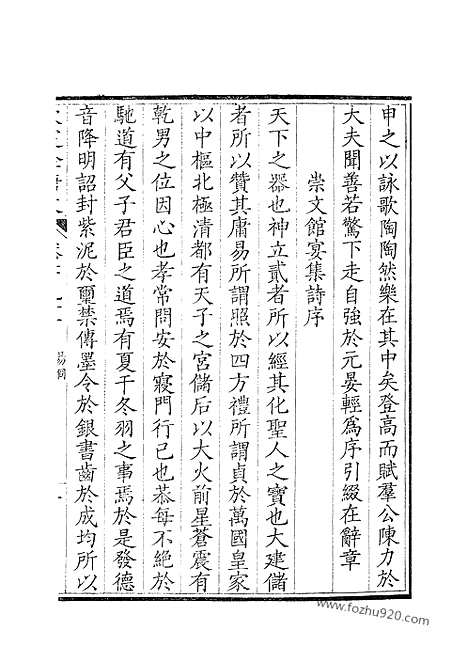 申之以詠歌陶陶然樂在其中矣登高而賦羣公陳力於
大夫聞善若驚下走自強於元晏輕爲序引綴在辭章
崇文館宴集詩序
天下之器也神立貳者所以經其化聖人之寶也大建儲
者所以贊其庸易所謂照於四方禮所謂貞於萬國皇家
以中樞北極清都有天子之宮儲后以大火前星蒼震有
乾男之位因心也孝常問安於寢門行己也恭每不絕於
馳道有父子君臣之道焉有夏干冬羽之事焉於是發德
音降明詔封紫泥於璽禁傳墨令於銀書齒於成均所以
楊炯
www.fozhu920.com